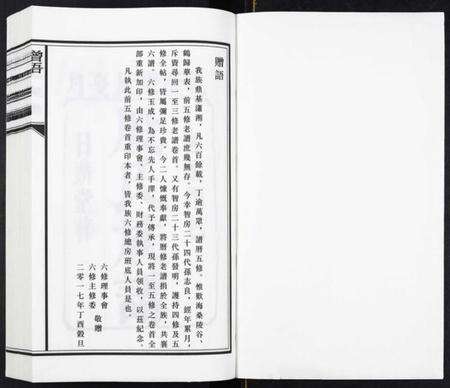 贈語
我族鼎基瀟湘，凡六百餘載，丁逾萬眾，譜曆五修。惟歎海桑陵谷、
鶴歸華表，前五修老譜庶幾無存。今幸智房二十四代孫志良，經年累月，
斥資尋回一至三修老譜卷首。又有智房二十三代孫發明，護持四修及五
修全帖，皆屬彌足珍貴。今二人慷慨奉獻，將曆修老譜捐於全族，共襄
六譜。六修玉成，為不忘先人手澤，代予傳承，現將一至五修之卷首全
部重新加印，由六修理事會、主修委、財務委執事人員領收，以茲紀念。
凡執此前五修卷首重印本者，皆我族六修總房班底人員是也。
六修理事會
六修主修委 敬贈
二零一七年丁酉榖旦
曾吾